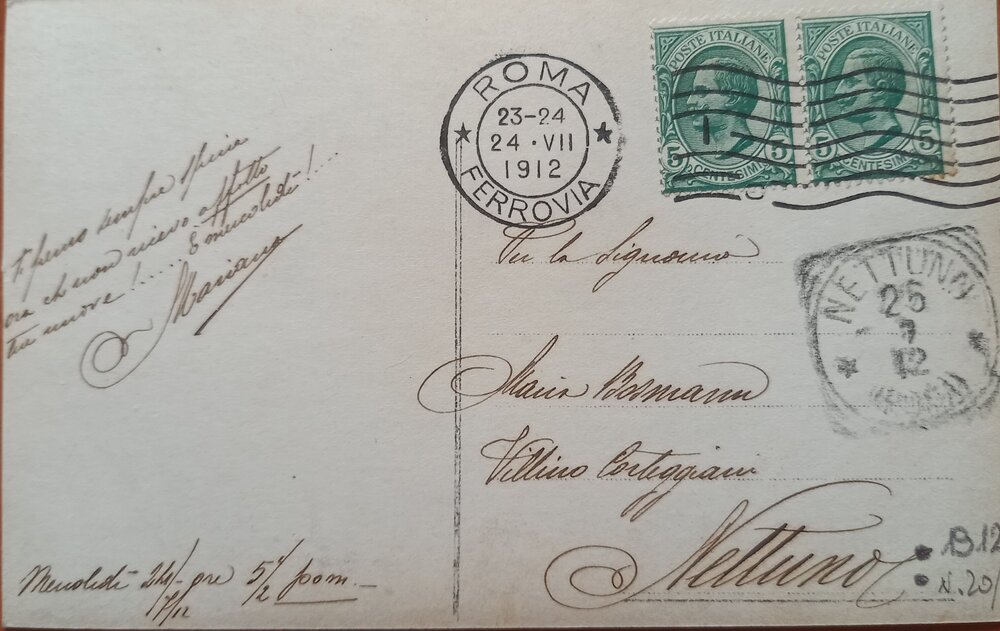 POSTE ITALIANE
5 CENTESIMI 5
POSTE ITALIANE
5 CENTESIMI 5
ROMA
23-24
24·VII
1912
FERROVIA
NETTUNO
7
12
(ROMA)
Ti penso sempre
ora che non ricevo affatto
tue nuove!..... È mercoledì!...
Mariano
Mercoledì 24/7/12 ore 5 1/2 pom.
Per la Signorina
Maria Bosmann
Villino Corteggiani
Nettuno
B12
N.20/